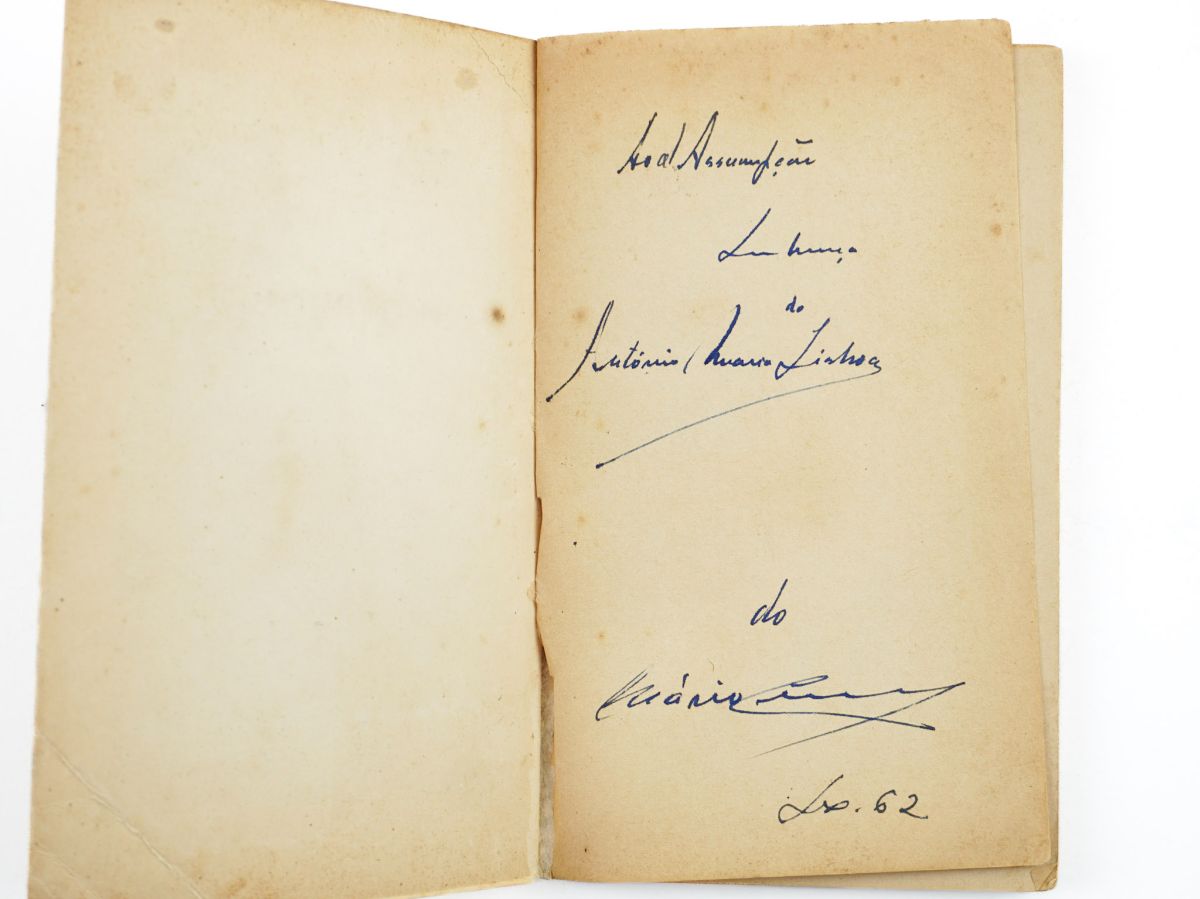 Ao d'Assumpção
Lembrança
do
António Maria Lisboa
do
Mário
Lx. 62